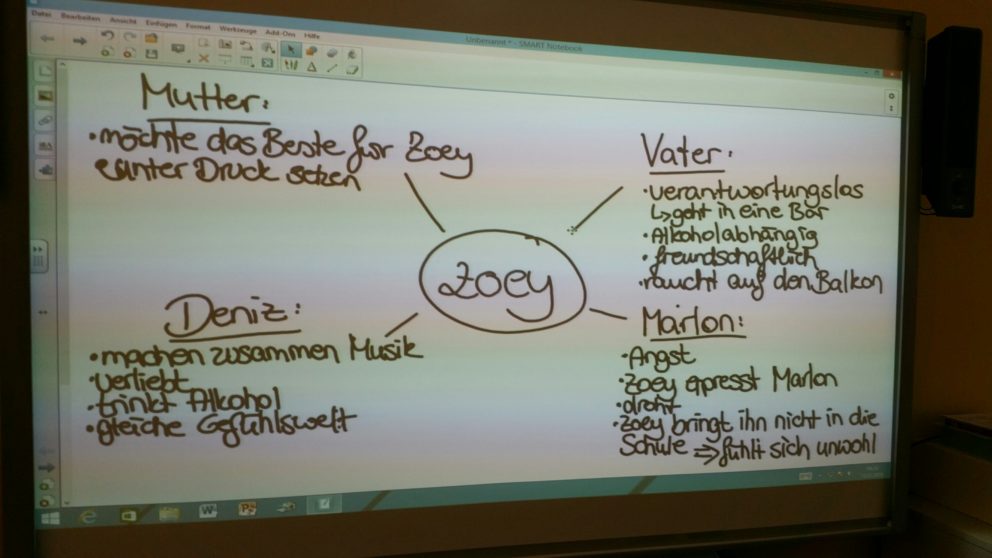 Datei Bearbeiten Ansicht Einfügen Format Werkzeuge Add-Ons Hilfe
Unbenannt * - SMART Notebook
Mutter:
• möchte das Beste für Zoey
unter Druck setzen
Vater:
• verantwortungslos
↳ geht in eine Bar
• Alkoholabhängig
• freundschaftlich
• raucht auf den Balkon
Zoey
Deniz:
• machen zusammen Musik
• verliebt
• trinkt Alkohol
• gleiche Gefühlswelt
Marlon:
• Angst
• Zoey eppresst Marlon
• droht
• Zoey bringt ihn nicht in die
Schule ⇒ fühlt sich unwohl